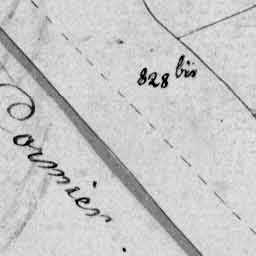 828 bis
Cormier